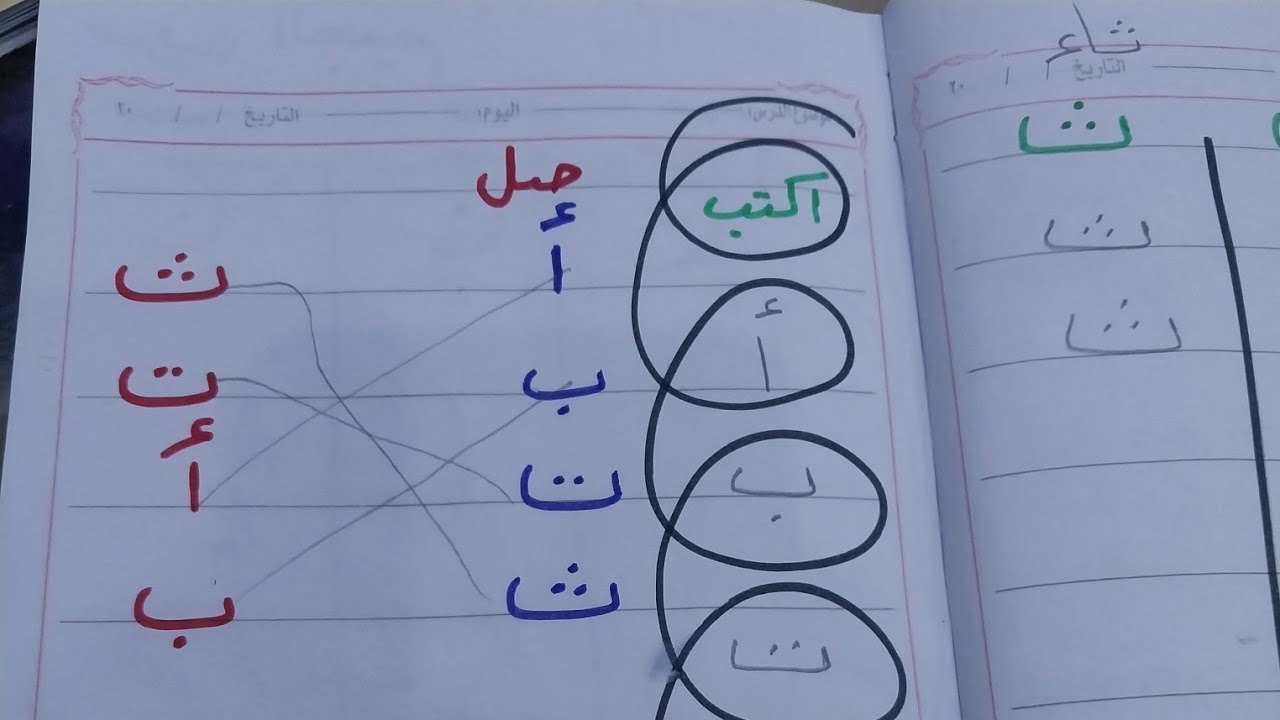 ثاء
التاريخ / / ٢٠
ث
ث
ث
موضوع الدرس: اليوم: التاريخ / / ٢٠
اكتب
أ
ب
ت
صل
أ ث
ب ت
ت أ
ث ب